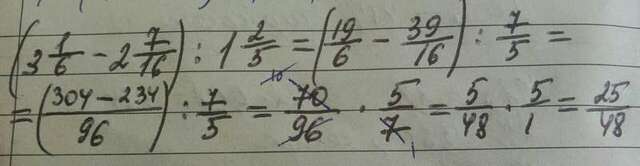 (3 1/6 − 2 7/16) : 1 2/5 = (19/6 − 39/16) : 7/5 =
= (304 − 234)/96 : 7/5 = 70/96 · 5/7 = 5/48 · 5/1 = 25/48